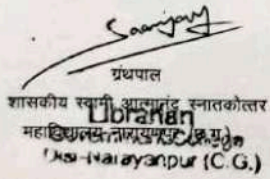 Sanjay
ग्रंथपाल
शासकीय स्वामी आत्मानंद स्नातकोत्तर
Librarian
महाविद्यालय नारायणपुर छ.ग.
Dist-Narayanpur (C.G.)